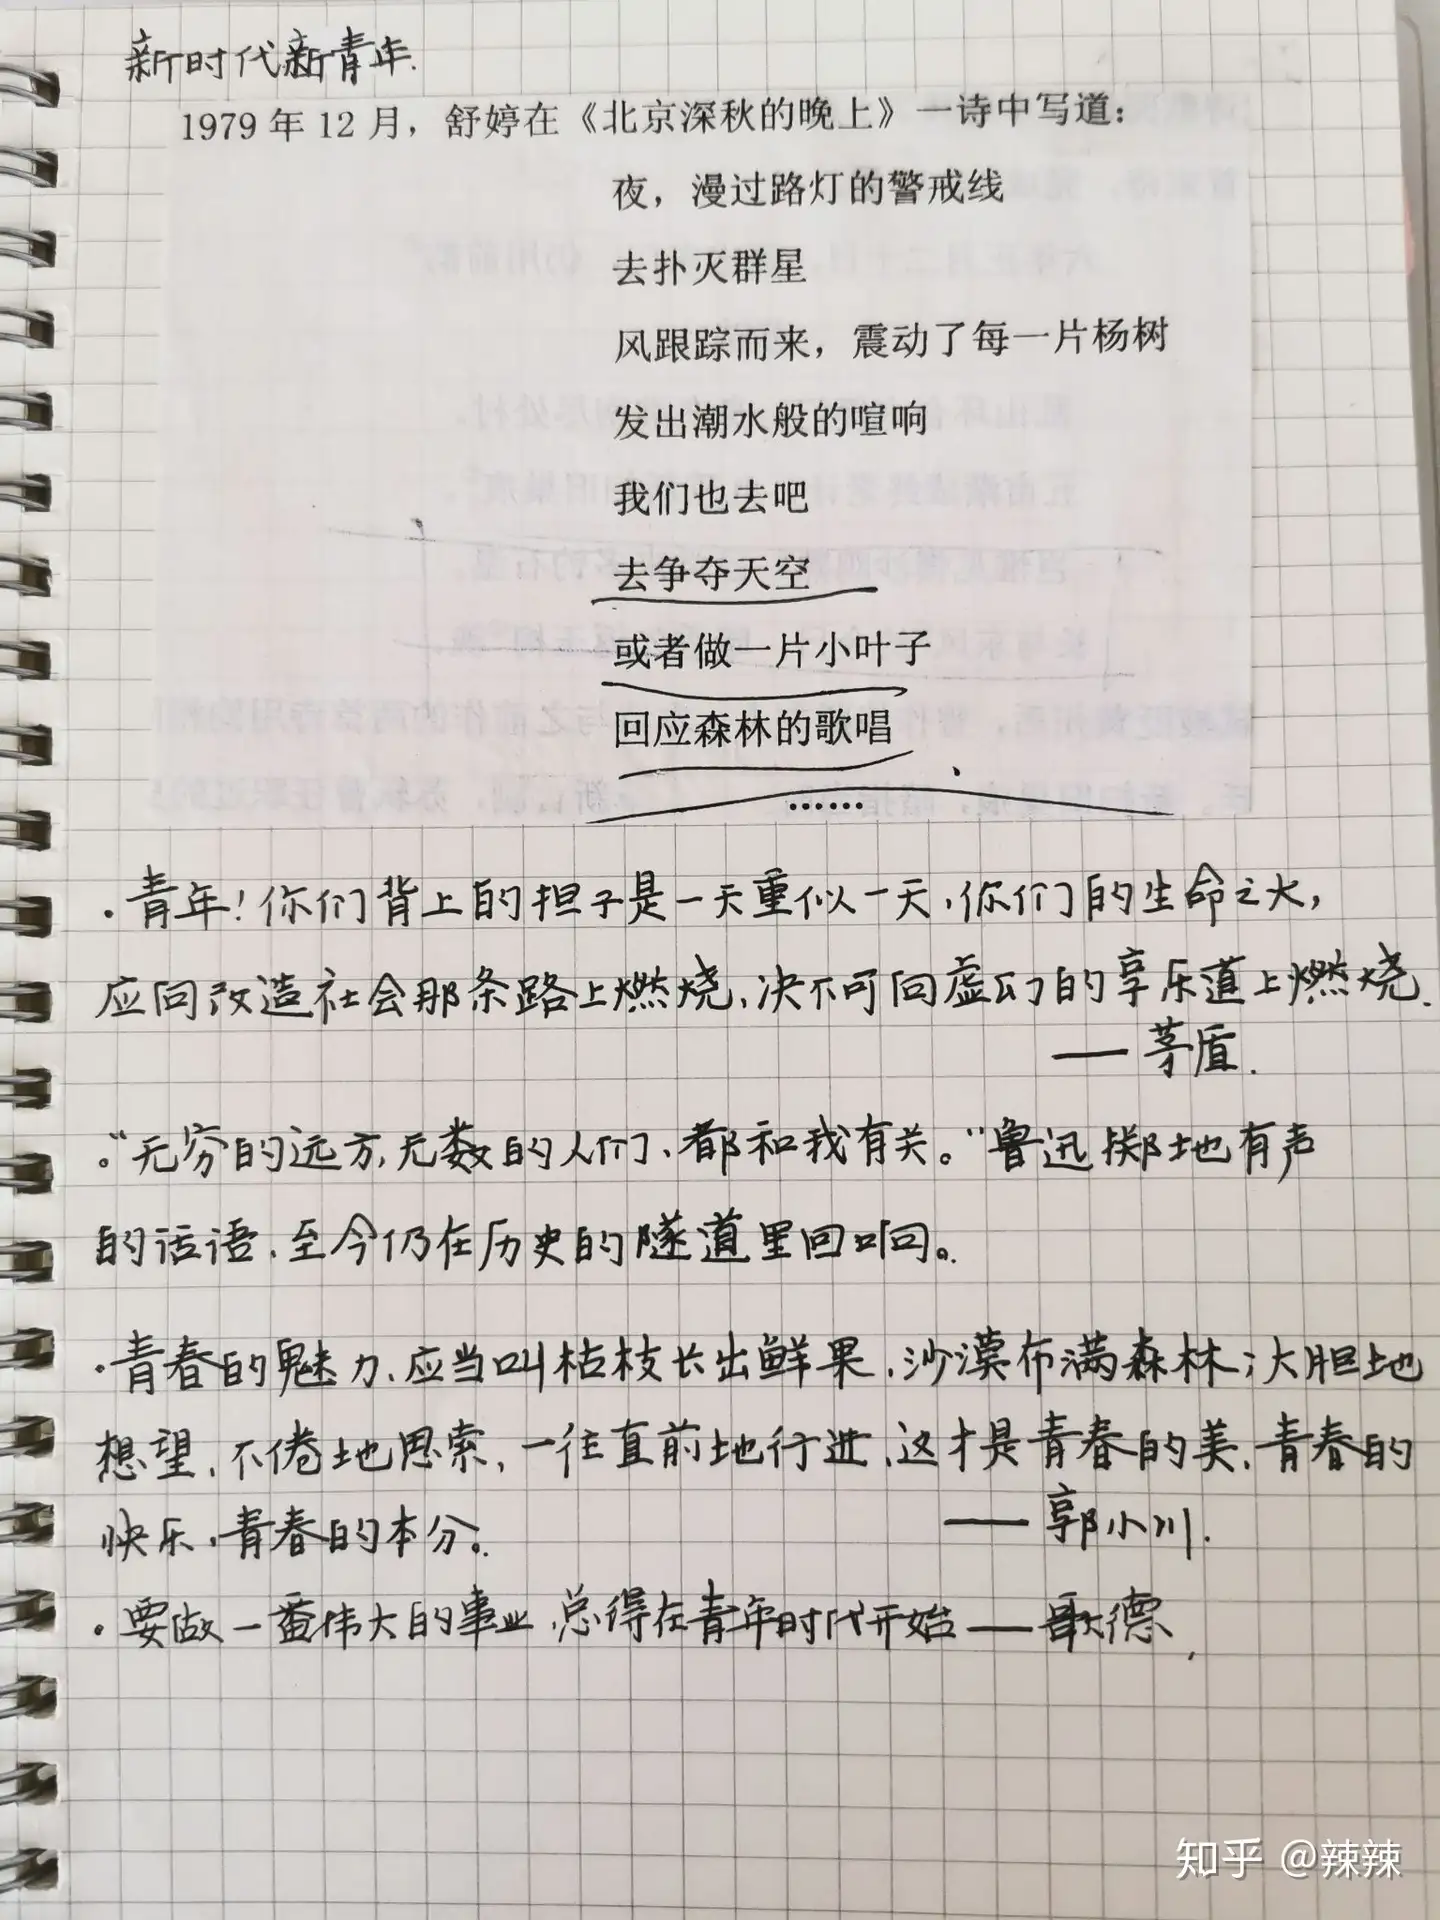 新时代新青年.
1979年12月，舒婷在《北京深秋的晚上》一诗中写道：
夜，漫过路灯的警戒线
去扑灭群星
风跟踪而来，震动了每一片杨树
发出潮水般的喧响
我们也去吧
去争夺天空
或者做一片小叶子
回应森林的歌唱
……
·青年！你们背上的担子是一天重似一天,你们的生命之火,
应向改造社会那条路上燃烧,决不可向虚幻的享乐道上燃烧.
——茅盾.
。“无穷的远方,无数的人们,都和我有关。”鲁迅掷地有声
的话语,至今仍在历史的隧道里回响。
·青春的魅力,应当叫枯枝长出鲜果,沙漠布满森林;大胆地
想望,不倦地思索,一往直前地行进,这才是青春的美,青春的
快乐,青春的本分。
——郭小川.
·要做一番伟大的事业,总得在青年时代开始——歌德.
知乎 @辣辣